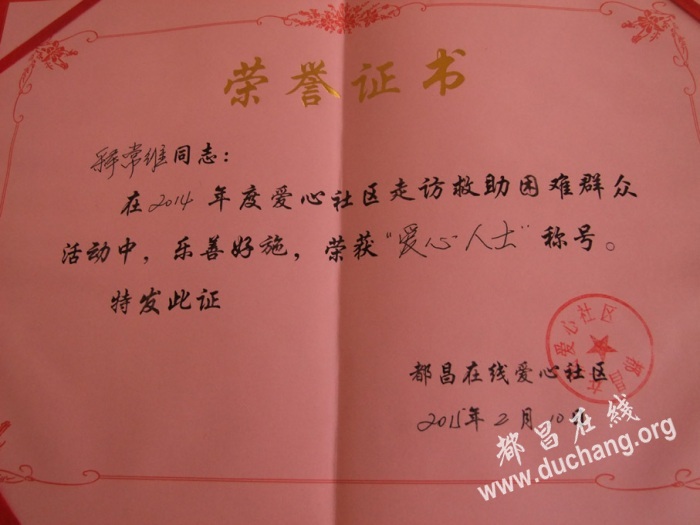 荣誉证书
释常维同志：
在2014年度爱心社区走访救助困难群众
活动中，乐善好施，荣获“爱心人士”称号。
特发此证
都昌在线爱心社区
2015年2月10日
都昌在线
www.duchang.org